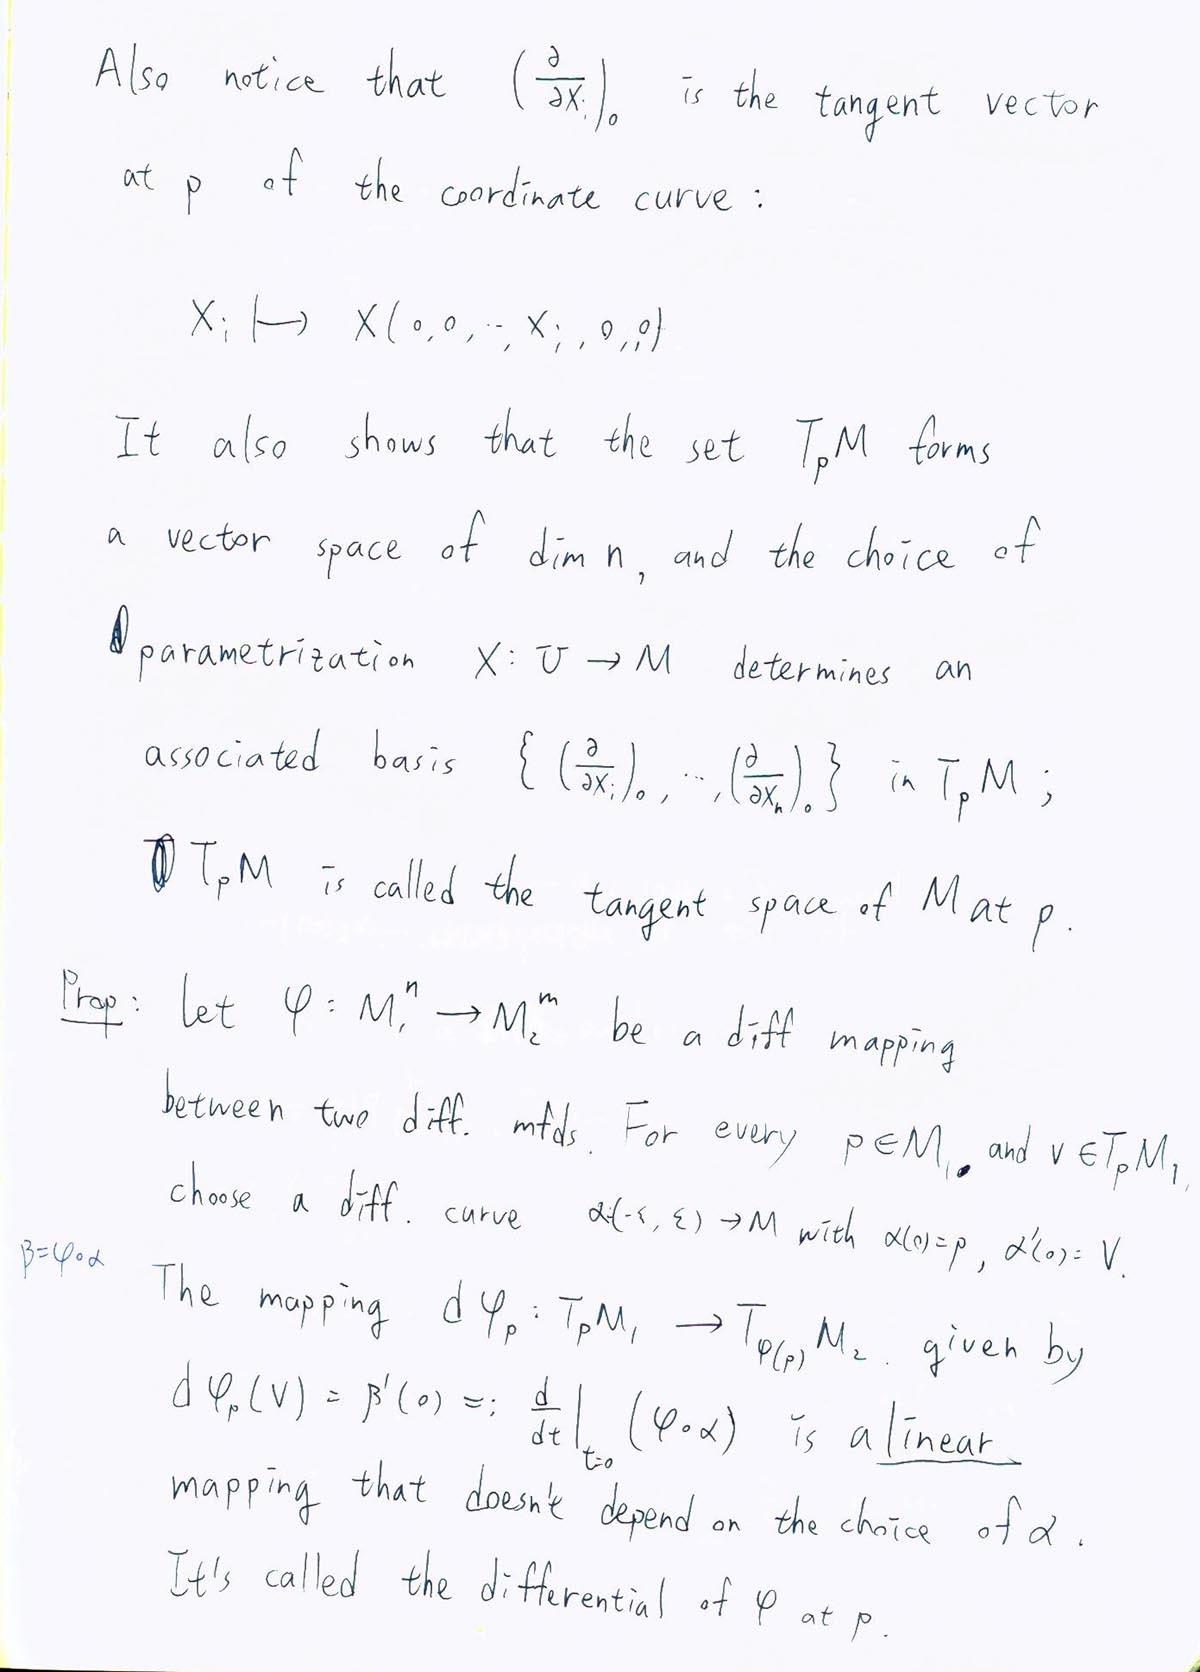 Also notice that (∂/∂xᵢ)₀ is the tangent vector
at p of the coordinate curve :
xᵢ ↦ X(0,0,..,xᵢ,0,,0)
It also shows that the set TₚM forms
a vector space of dim n, and the choice of
parametrization X: U → M determines an
associated basis { (∂/∂xᵢ)₀, ..., (∂/∂xₙ)₀ } in TₚM ;
TₚM is called the tangent space of M at p.
Prop: let φ : M₁ⁿ → M₂ᵐ be a diff mapping
between two diff. mfds. For every p∈M₁, and v∈TₚM₁,
choose a diff. curve α:(-ε, ε) → M with α(0)=p, α'(0)= V.
β=φ∘α
The mapping dφₚ : TₚM₁ → T_φ(p) M₂. given by
dφₚ(V) = β'(0) =: d/dt|ₜ₌₀ (φ∘α) is a linear
mapping that doesn't depend on the choice of α.
It's called the differential of φ at p.